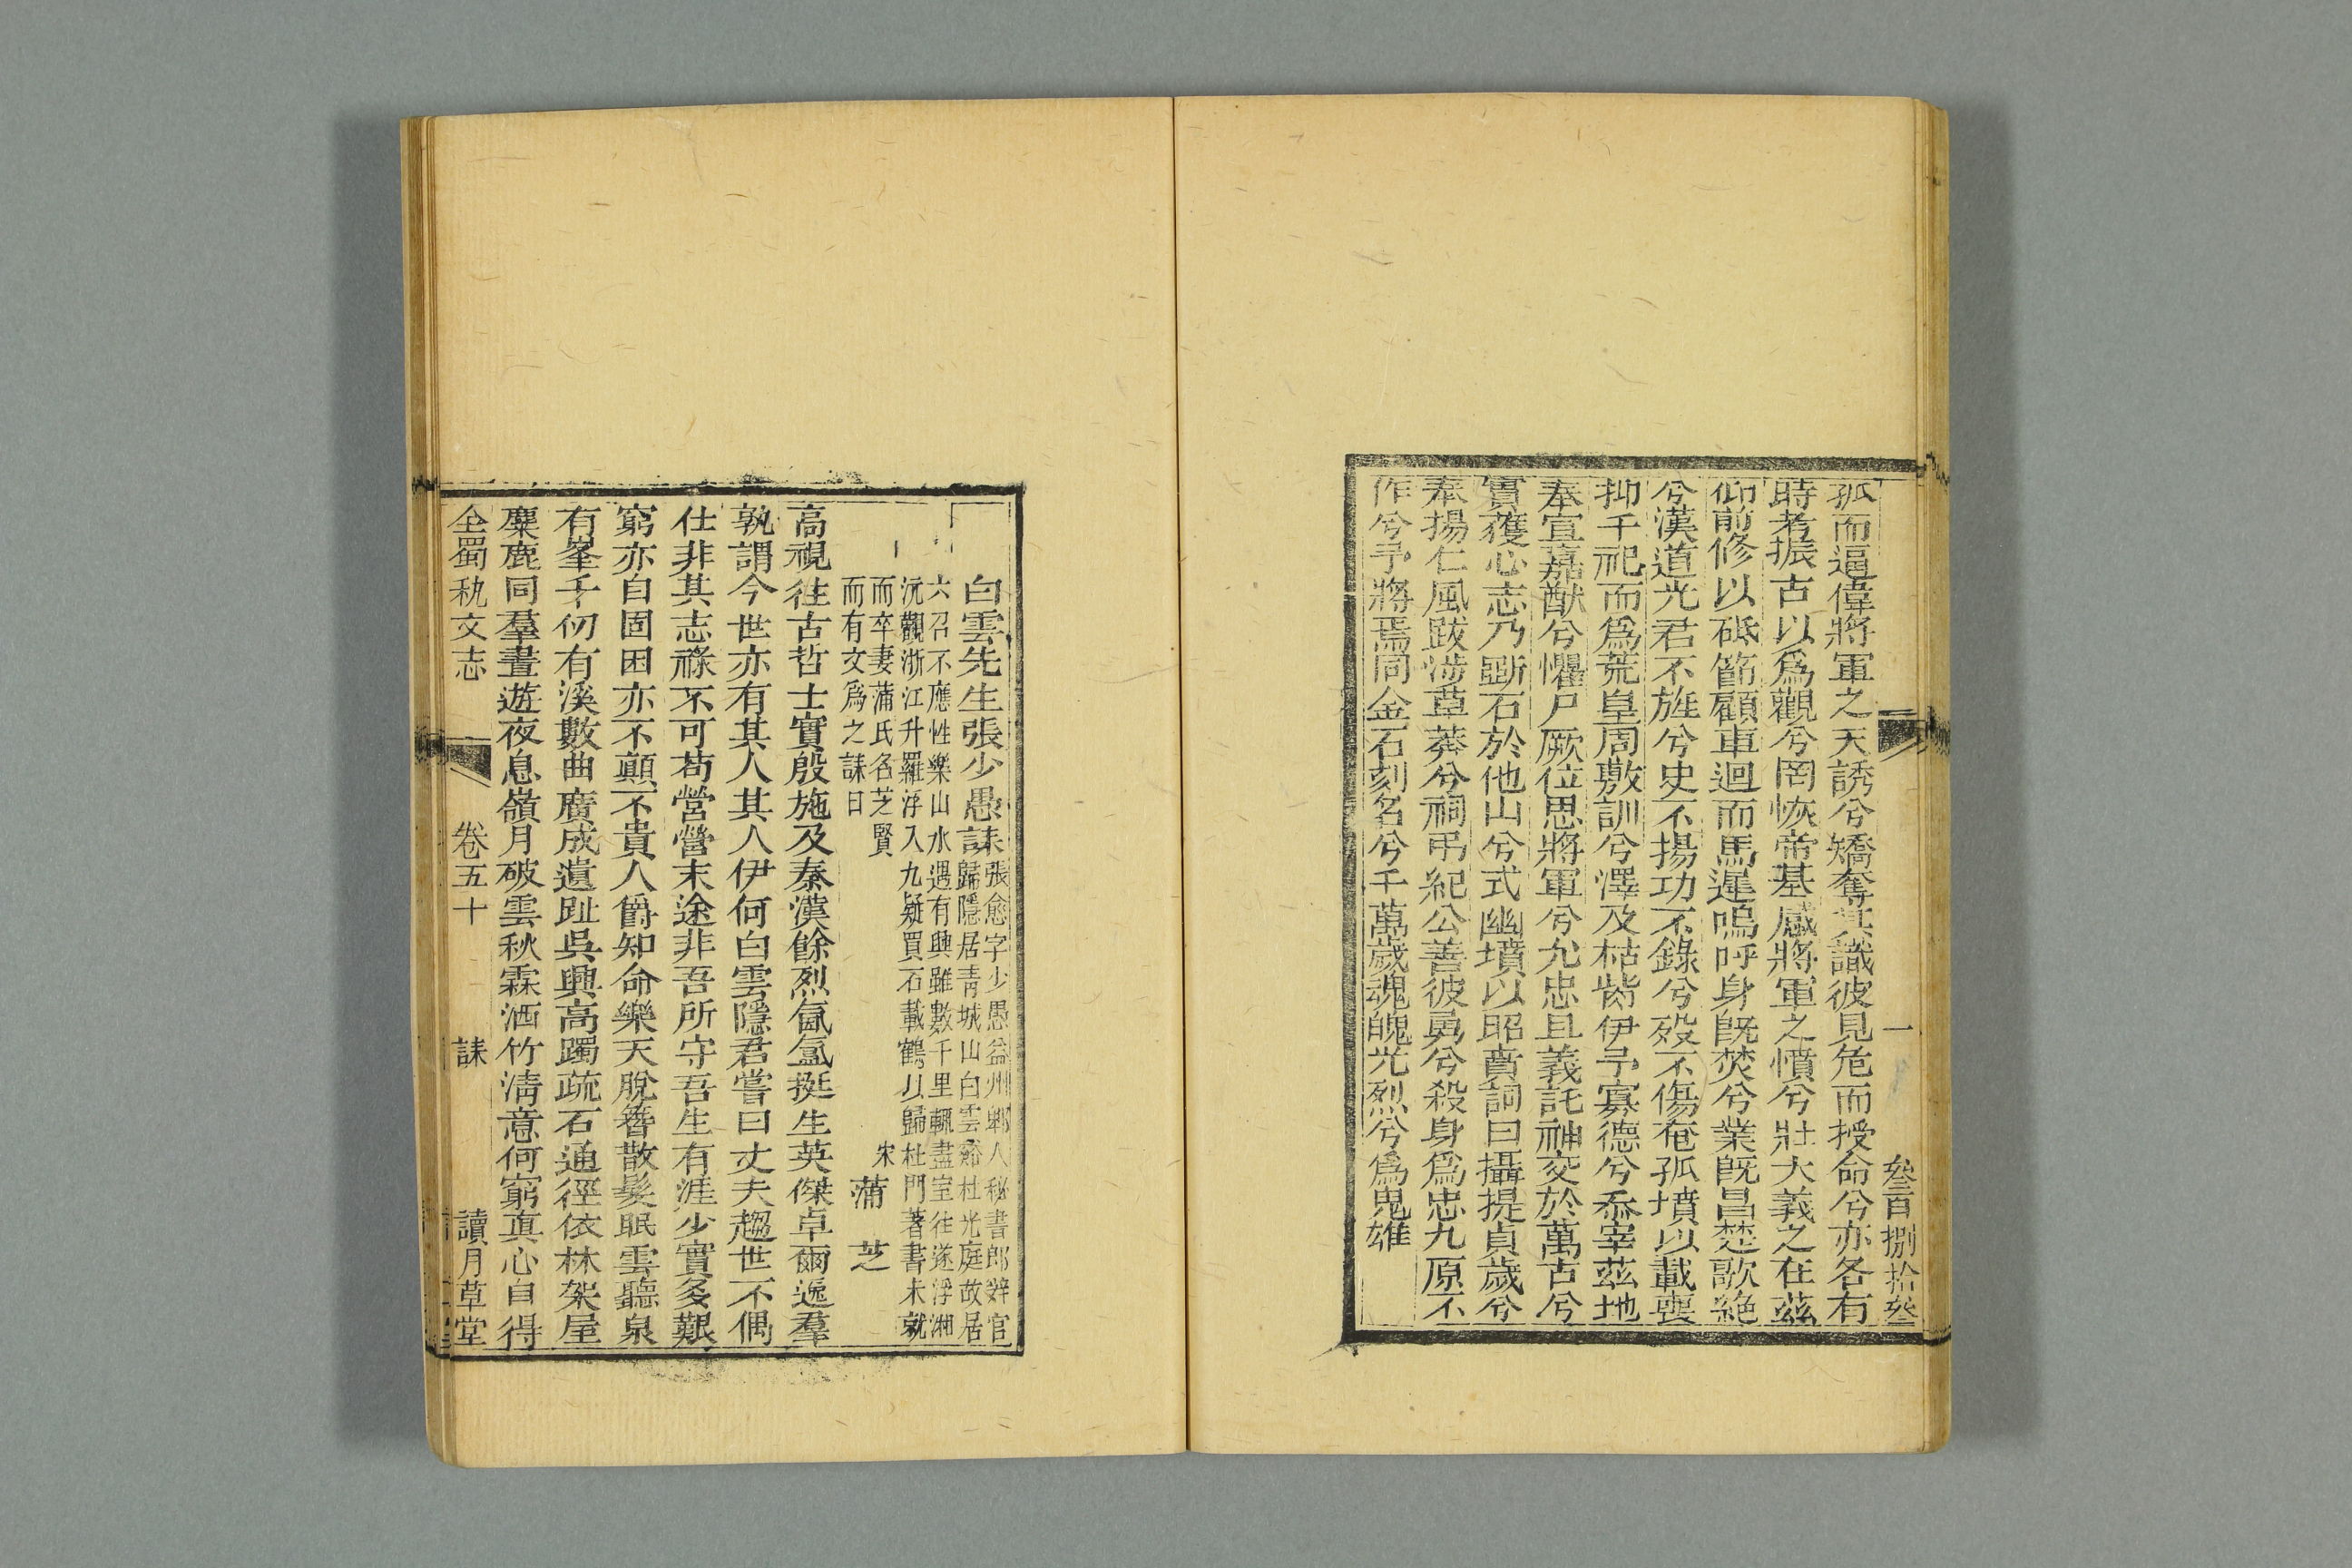 一 叄百捌拾叄
孤而逼偉將軍之天誘兮矯奪其識彼見危而授命兮亦各有
時考振古以爲觀兮罔恢帝基感將軍之憤兮壯大義之在茲
仰前修以砥節顧車迴而馬遲嗚呼身旣焚兮業旣昌楚歌絶
兮漢道光君不旌兮史不揚功不錄兮歿不傷奄孤墳以載喪
抑千祀而爲荒皇周敷訓兮澤及枯胔伊予寡德兮忝宰茲地
奉宣嘉猷兮懼尸厥位思將軍兮允忠且義託神交於萬古兮
實獲心志乃斲石於他山兮式幽墳以昭賁詞曰攝提貞歲兮
奉揚仁風跋涉草莽兮祠弔紀公善彼勇兮殺身爲忠九原不
作兮予將焉同金石刻名兮千萬歲魂魄光烈兮爲鬼雄
白雲先生張少愚誄
張愈字少愚益州郫人秘書郎辤官
歸隱居靑城山白雲谿杜光庭故居
六召不應性樂山水遇有興雖數千里輒盡室往遂浮湘
沅觀浙江升羅浮入九疑買石載鶴以歸杜門著書未就
而卒妻蒲氏名芝賢
而有文爲之誄曰
宋 蒲 芝
高視往古哲士實殷施及秦漢餘烈氤氳挺生英傑卓爾逸羣
孰謂今世亦有其人其人伊何白雲隱君嘗曰丈夫趨世不偶
仕非其志祿不可苟營營末途非吾所守吾生有涯少實多艱
窮亦自固困亦不顛不貴人爵知命樂天脫簪散髮眠雲聽泉
有峯千仞有溪數曲廣成遺趾吳興高躅疏石通徑依林架屋
麋鹿同羣晝遊夜息嶺月破雲秋霖洒竹淸意何窮眞心自得
全蜀秇文志 卷五十 誄 讀月草堂